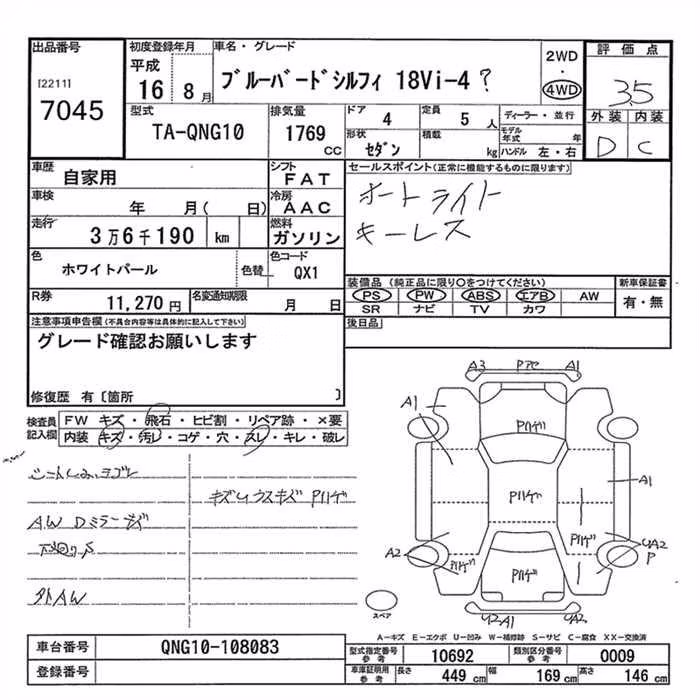 出品番号
[2211]
7045
初度登録年月
平成
16 8月
車名・グレード
ブルーバードシルフィ 18Vi-4?
2WD
・
4WD
評価点
3.5
外装 内装
D C
型式
TA-QNG10
排気量
1769 CC
ドア 4
定員 5 人
形状 セダン
積載 kg
ディーラー・並行
モデル年式 年
ハンドル 左・右
車歴
自家用
シフト
FAT
車検
年 月( 日)
冷房
AAC
走行
3万6千190 km
燃料
ガソリン
色
ホワイトパール
色替
色コード
QX1
R券
11,270円
名変通知期限
月 日
セールスポイント(正常に機能するものに限ります)
オートライト
キーレス
装備品(純正品に限り○をつけてください)
PS PW ABS エアB AW
SR ナビ TV カワ
新車保証書
有・無
後日品
注意事項申告欄(不具合内容等は具体的に記入して下さい)
グレード確認お願いします
修復歴 有〔箇所 〕
検査員
記入欄
FW キズ・飛石・ヒビ割・リペア跡・×要
内装 キズ・汚レ・コゲ・穴・スレ・キレ・破レ
キズUウスキズ Pハゲ
AW Dミラーキズ
下回りS
外AW
A3 Pアセ A1
A1
Pハゲ
Pハゲ
A1
Pハゲ
A2
Pハゲ
Pハゲ
Pハゲ
UA2
P
U2A1 UA2
スペア
A-キズ E-エクボ U-凹み W-補修跡 S-サビ C-腐食 XX-交換済
車台番号 QNG10-108083
登録番号
型式指定番号
参考
10692
類別区分番号
参考
0009
車庫証明用
参考
長さ 449 cm
幅 169 cm
高さ 146 cm